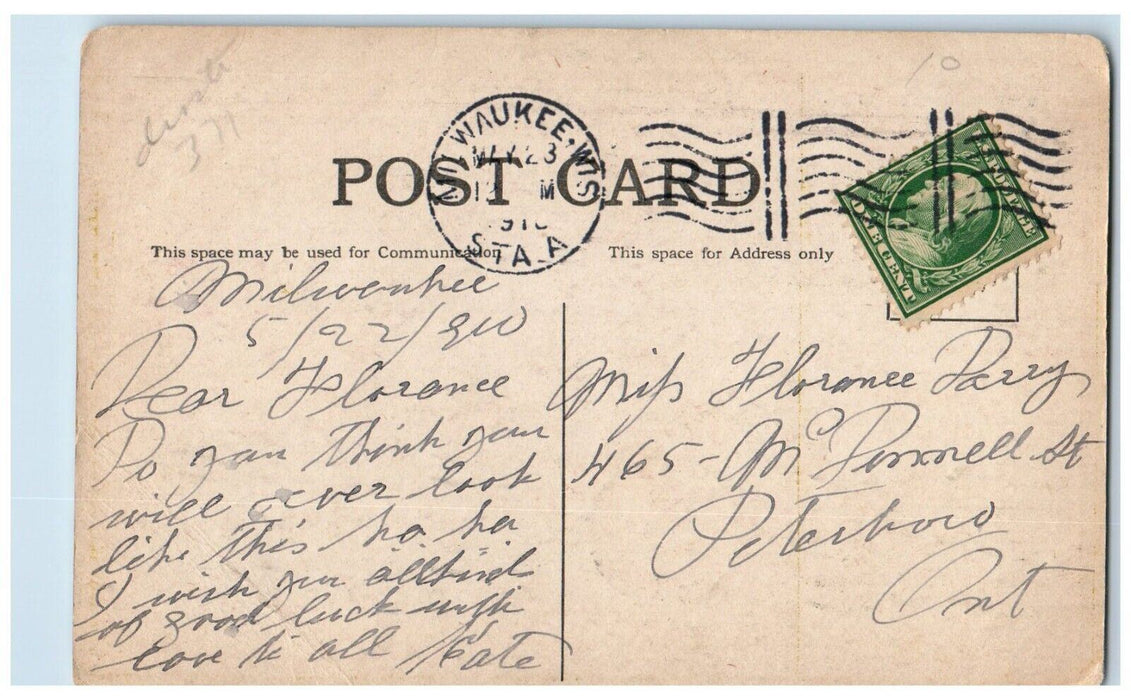 371
10
MILWAUKEE, WIS.
MAY 23
12 M
1910
STA. A
POST CARD
ONE CENT
This space may be used for Communication
This space for Address only
Milwaukee
5/22/910
Dear Florance
Do you think you
will ever look
like this ha ha
I wish you all kind
of good luck with
love to all Kate
Miss Florance Perry
465 - McDonnell St
Peterboro
Ont